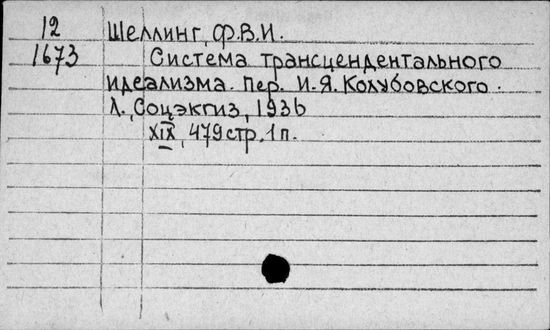 12 Шеллинг, Ф.В.И.
1673 Система трансцендентального
идеализма. Пер. И.Я. Колубовского.
Л., Соцэкгиз, 1936
XIX, 479 стр. 1 п.